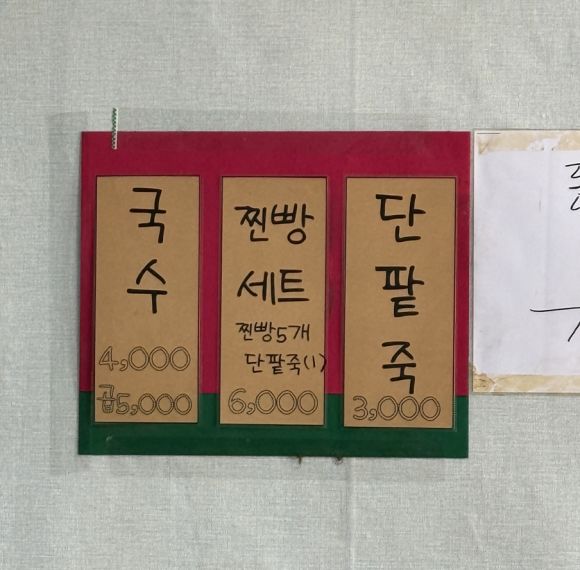 국
수
4,000
곱5,000
찐빵
세트
찐빵5개
단팥죽(1)
6,000
단
팥
죽
3,000